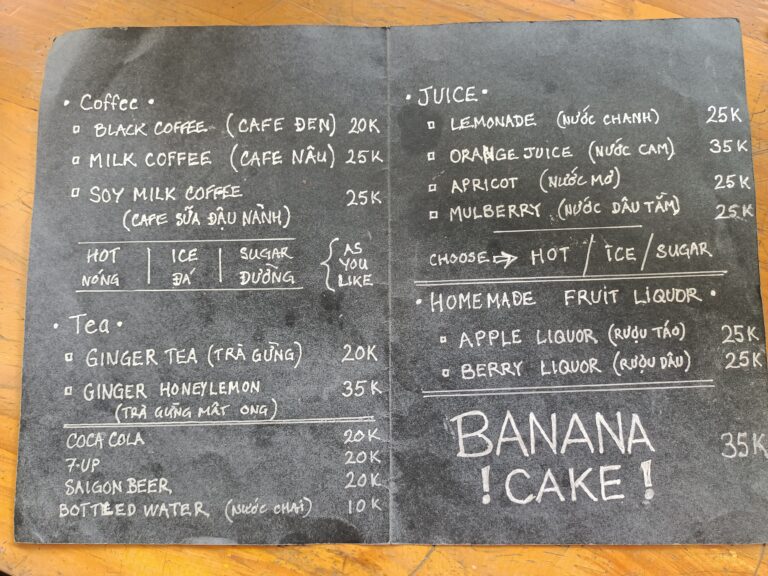 • Coffee •
▫ BLACK COFFEE (CAFE ĐEN) 20K
▫ MILK COFFEE (CAFE NÂU) 25K
▫ SOY MILK COFFEE 25K
(CAFE SỮA ĐẬU NÀNH)
HOT | ICE | SUGAR { AS
NÓNG | ĐÁ | ĐƯỜNG YOU
LIKE
• Tea •
▫ GINGER TEA (TRÀ GỪNG) 20K
▫ GINGER HONEYLEMON 35K
(TRÀ GỪNG MẬT ONG)
COCA COLA 20K
7-UP 20K
SAIGON BEER 20K
BOTTLED WATER (NƯỚC CHAI) 10K
• JUICE •
▫ LEMONADE (NƯỚC CHANH) 25K
▫ ORANGE JUICE (NƯỚC CAM) 35K
▫ APRICOT (NƯỚC MƠ) 25K
▫ MULBERRY (NƯỚC DÂU TẰM) 25K
CHOOSE ⇨ HOT / ICE / SUGAR
• HOMEMADE FRUIT LIQUOR •
▫ APPLE LIQUOR (RƯỢU TÁO) 25K
▫ BERRY LIQUOR (RƯỢU DÂU) 25K
BANANA 35K
! CAKE !